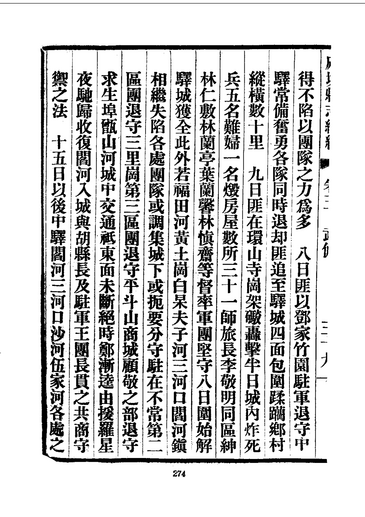 得不陷以團隊之力爲多　八日匪以鄧家竹園駐軍退守中
驛常備奮勇各隊同時退却匪追至驛城四面包圍蹂躪鄉村
縱橫數十里　九日匪在環山寺崗架礮轟擊半日城內炸死
兵五名難婦一名燬房屋數所三十一師旅長李敬明同區紳
林仁敷林蘭亭葉蘭馨林慎齋等督率軍團堅守八日圍始解
驛城獲全此外若福田河黃土崗白杲夫子河三河口閻河鎭
相繼失陷各處團隊或調集城下或扼要分守駐在不常第二
區團退守三里崗第三區團退守平斗山商城顧敬之部退守
求生埠甑山河城中交通祗東面未斷絕時鄭漸逵由援羅星
夜馳歸收復閻河入城與胡縣長及駐軍王團長貫之共商守
禦之法　十五日以後中驛閻河三河口沙河伍家河各處之
274